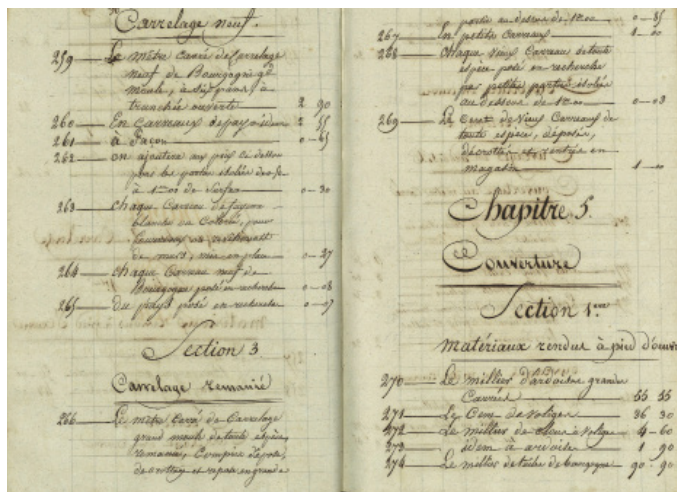 Carrelage neuf.
259 Le Mètre Carré de Carrelage
neuf de Bourgogne gd
moule, à six pans, à
tranchée ouverte 2 90
260 En Carreaux du pays idem 2 55
261 à façon 0-65
262 on ajoutera aux prix ci dessus
pour les parties isolées
à 1m00 de Surface 0-30
263 Chaque Carreau de fayence
blanche ou Colorée, pour
fourneaux ou revêtement
de murs, mis en place 0-27
264 Chaque Carreau neuf de
Bourgogne posé en recherche 0-08
265 Du pays posé en recherche 0-07
Section 3
Carrelage remanié
266 Le mètre Carré de Carrelage
grand moule de toute espèce,
remanié, Compris dépose,
décrottage et repose en grande
partie au dessus de 1m00 0-85
267 En petits Carreaux 1-00
268 Chaque vieux Carreau de toute
espèce posé en recherche
par petites parties isolées
au dessous de 1m00 0-03
269 Le Cent de Vieux Carreaux de
toute espèce, déposés,
décrottés et rentrés en
magasin 1-00
Chapitre 5.
Couverture
Section 1ere
matériaux rendus à pied d'oeuvre
270 Le millier d'ardoises grandes
Carrées 55 55
271 Le Cent de Voliges 36 30
272 Le millier de Clous à Volige 4-60
273 idem à ardoise 1 90
274 Le millier de tuile de bourgogne 90-90